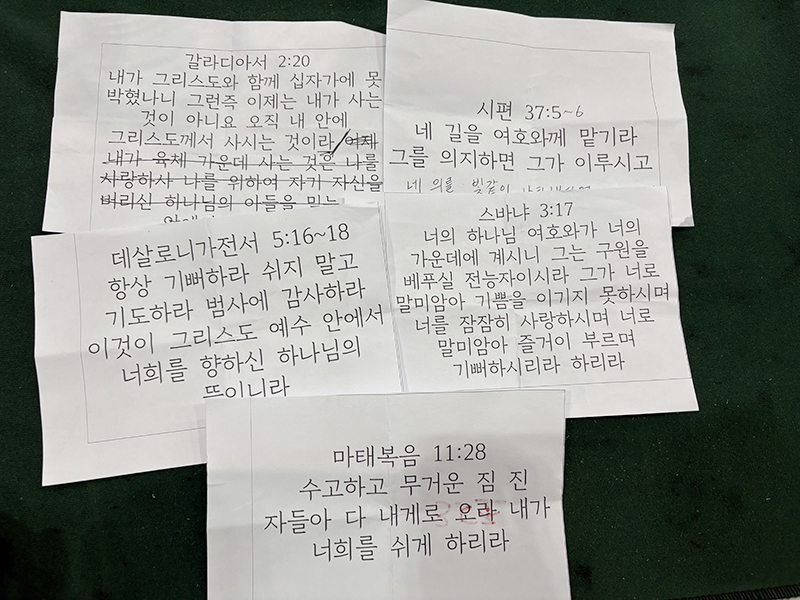 갈라디아서 2:20
내가 그리스도와 함께 십자가에 못
박혔나니 그런즉 이제는 내가 사는
것이 아니요 오직 내 안에
그리스도께서 사시는 것이라 이제
내가 육체 가운데 사는 것은 나를
사랑하사 나를 위하여 자기 자신을
버리신 하나님의 아들을 믿는
시편 37:5~6
네 길을 여호와께 맡기라
그를 의지하면 그가 이루시고
네 의를 빛같이
데살로니가전서 5:16~18
항상 기뻐하라 쉬지 말고
기도하라 범사에 감사하라
이것이 그리스도 예수 안에서
너희를 향하신 하나님의
뜻이니라
스바냐 3:17
너의 하나님 여호와가 너의
가운데에 계시니 그는 구원을
베푸실 전능자이시라 그가 너로
말미암아 기쁨을 이기지 못하시며
너를 잠잠히 사랑하시며 너로
말미암아 즐거이 부르며
기뻐하시리라 하리라
마태복음 11:28
수고하고 무거운 짐 진
자들아 다 내게로 오라 내가
너희를 쉬게 하리라